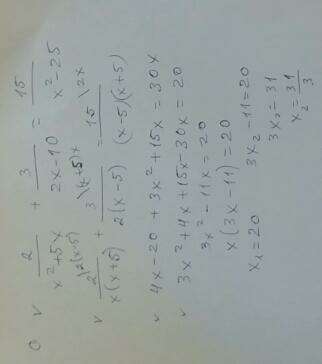 0 v 2/(x²+5x) + 3/(2x-10) = 15/(x²-25)
v 2\2(x-5)/(x(x+5)) + 3\(x+5)x/(2(x-5)) = 15\2x/((x-5)(x+5))
v 4x-20+3x²+15x=30x
v 3x²+4x+15x-30x=20
3x²-11x=20
x(3x-11)=20
x₁=20 3x₂-11=20
3x₂=31
x₂=31/3